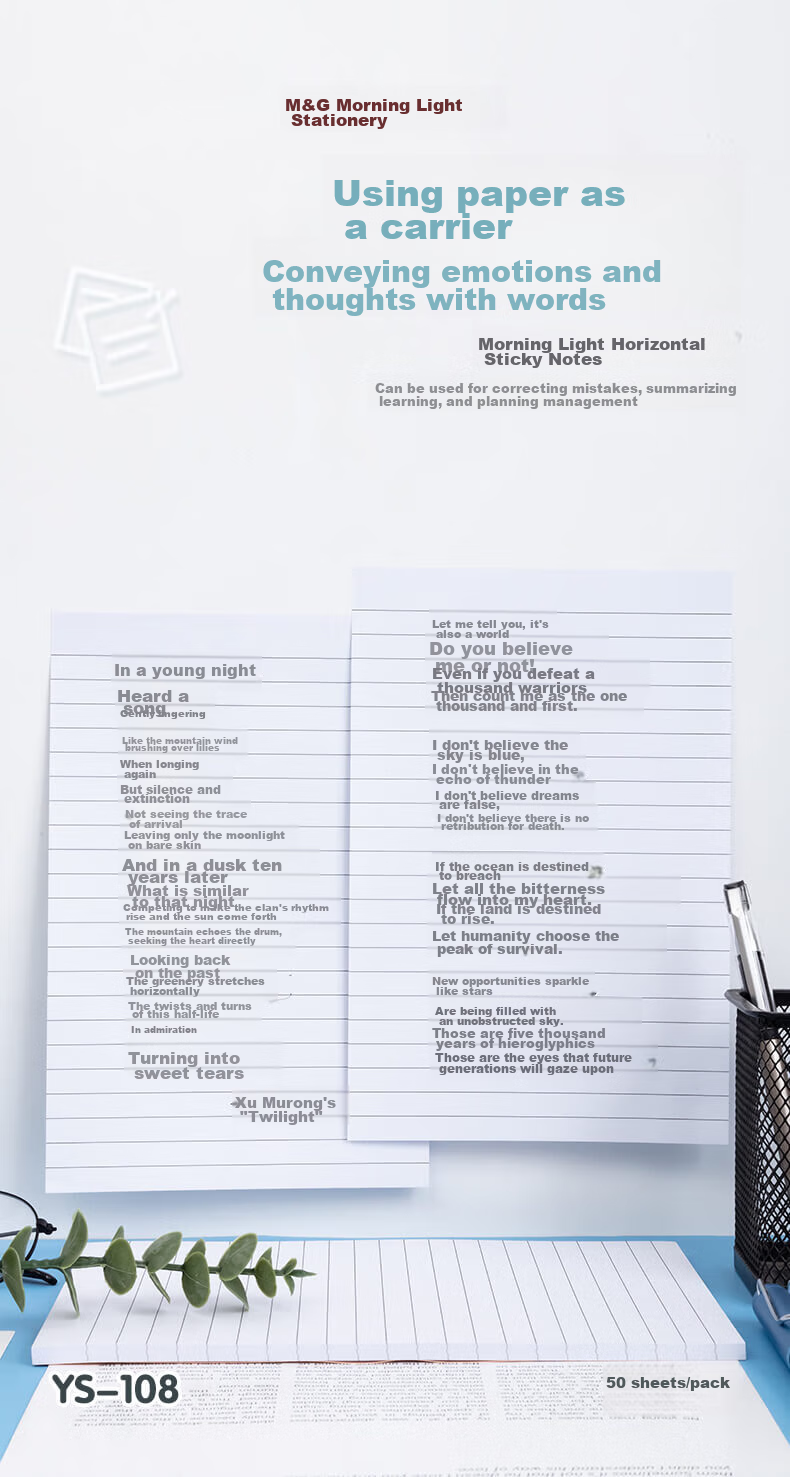 M&G Morning Light
Stationery
Using paper as
a carrier
Conveying emotions and
thoughts with words
Morning Light Horizontal
Sticky Notes
Can be used for correcting mistakes, summarizing
learning, and planning management
In a young night
Heard a
song
Gently lingering
Like the mountain wind
brushing over lilies
When longing
again
But silence and
extinction
Not seeing the trace
of arrival
Leaving only the moonlight
on bare skin
And in a dusk ten
years later
What is similar
to that night
Competing to make the clan's rhythm
rise and the sun come forth
The mountain echoes the drum,
seeking the heart directly
Looking back
on the past
The greenery stretches
horizontally
The twists and turns
of this half-life
In admiration
Turning into
sweet tears
Xu Murong's
"Twilight"
Let me tell you, it's
also a world
Do you believe
me or not!
Even if you defeat a
thousand warriors
Then count me as the one
thousand and first.
I don't believe the
sky is blue,
I don't believe in the
echo of thunder
I don't believe dreams
are false,
I don't believe there is no
retribution for death.
If the ocean is destined
to breach
Let all the bitterness
flow into my heart.
If the land is destined
to rise.
Let humanity choose the
peak of survival.
New opportunities sparkle
like stars
Are being filled with
an unobstructed sky.
Those are five thousand
years of hieroglyphics
Those are the eyes that future
generations will gaze upon
YS-108
50 sheets/pack